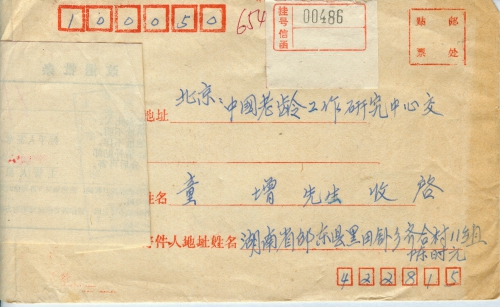 100050
654
挂号信函
00486
贴 邮
票 处
北京：中国老龄工作研究中心交
地址
姓名 童 增 先生 收 启
寄件人地址姓名 湖南省邵东县黑田铺乡齐合村11组
陈时
422815